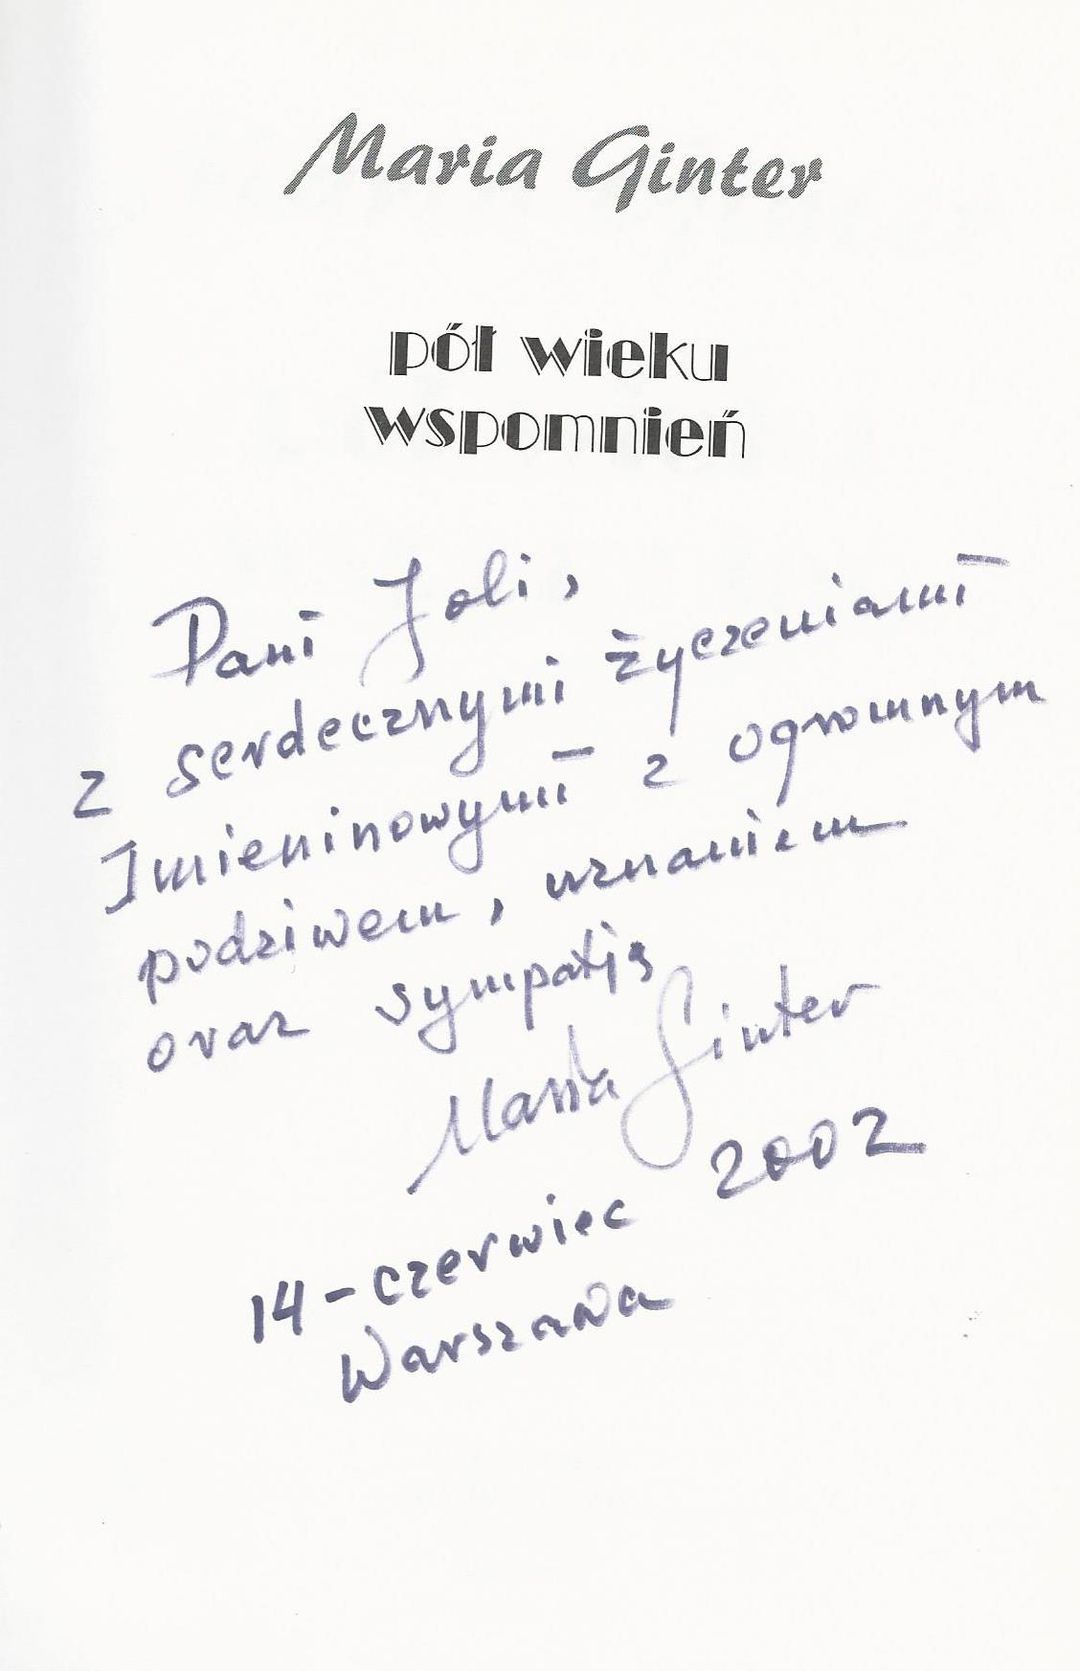 Maria Ginter
pół wieku
wspomnień
Pani Joli,
z serdecznymi życzeniami
Imieninowymi z ogromnym
podziwem, uznaniem
oraz sympatją
Maria Ginter
14 - czerwiec 2002
Warszawa